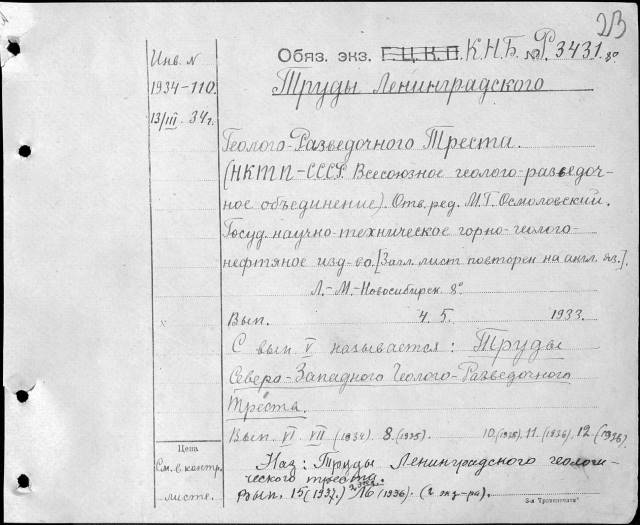 2В
Обяз. экз. Г.Ц.К.П. К.Н.Б. № Ф 3431. 8º
Труды Ленинградского
Инв. N
1934-110.
13/III. 34 г.
Геолого-Разведочного Треста.
(НКТП-СССР. Всесоюзное геолого-разведоч-
ное объединение). Отв. ред. М.Г. Осмоловский.
Госуд. научно-техническое горно-геолого-
нефтяное изд-во. [Загл. лист повторен на англ. яз.].
Л.-М.-Новосибирск 8º
Вып. 4. 5. 1933.
С вып. V называется: Труды
Северо-Западного Геолого-Разведочного
Треста.
Вып. VI. VII (1934). 8. (1935). 10. (1935). 11. (1936). 12. (1936).
Цена
См. в контр.
листе.
Наз: Труды Ленинградского геологи-
ческого треста.
Вып. 15 (1937.) 2 экз. 16 (1936). (2 экз-ра).